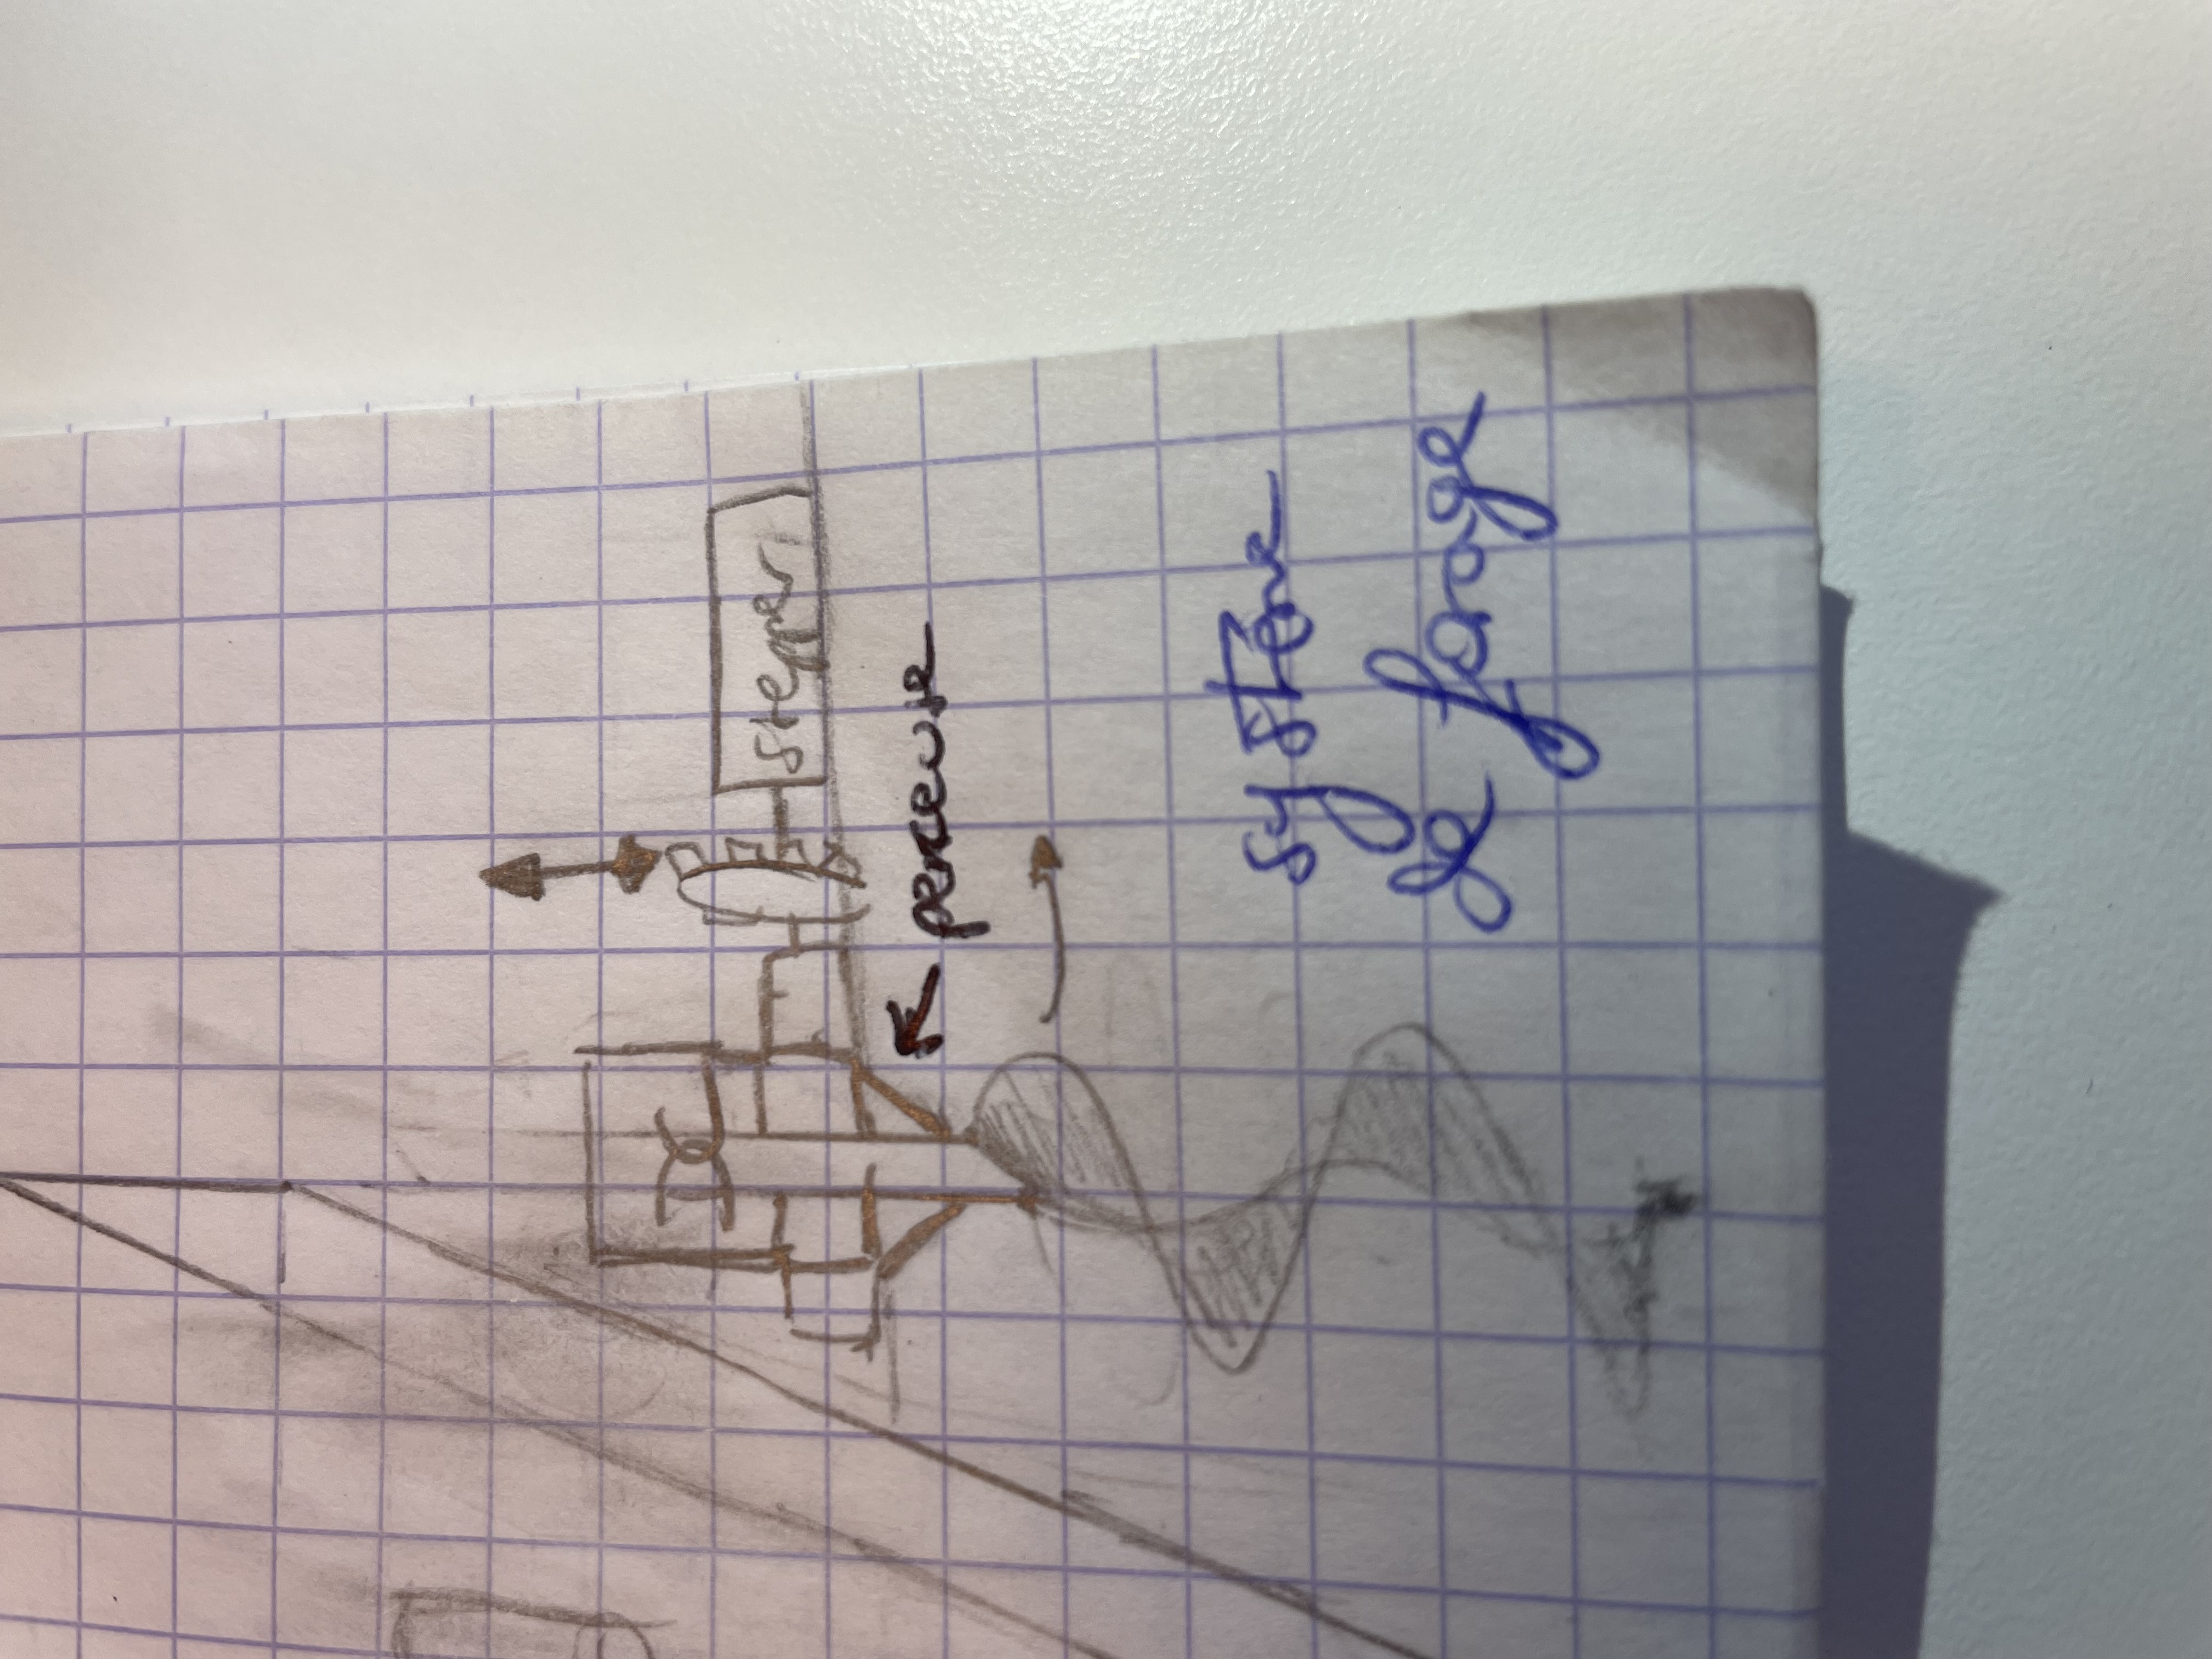 DC
stepper
perceuse
système
de forage